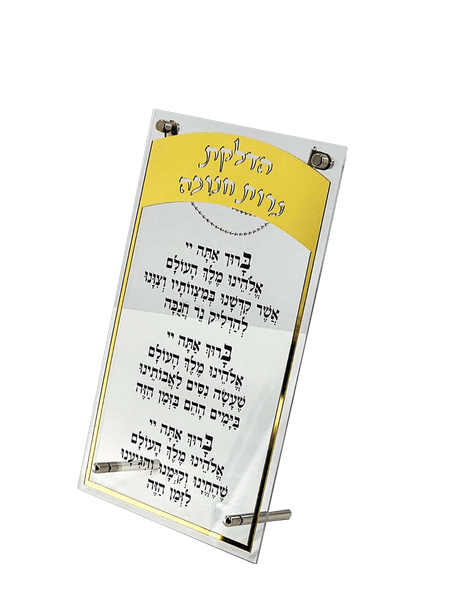 הדלקת
נרות חנוכה
בָּרוּךְ אַתָּה יי
אֱלֹהֵינוּ מֶלֶךְ הָעוֹלָם
אֲשֶׁר קִדְּשָׁנוּ בְּמִצְוֹתָיו וְצִוָּנוּ
לְהַדְלִיק נֵר חֲנֻכָּה
בָּרוּךְ אַתָּה יי
אֱלֹהֵינוּ מֶלֶךְ הָעוֹלָם
שֶׁעָשָׂה נִסִּים לַאֲבוֹתֵינוּ
בַּיָּמִים הָהֵם בַּזְּמַן הַזֶּה
בָּרוּךְ אַתָּה יי
אֱלֹהֵינוּ מֶלֶךְ הָעוֹלָם
שֶׁהֶחֱיָנוּ וְקִיְּמָנוּ וְהִגִּיעָנוּ
לַזְּמַן הַזֶּה